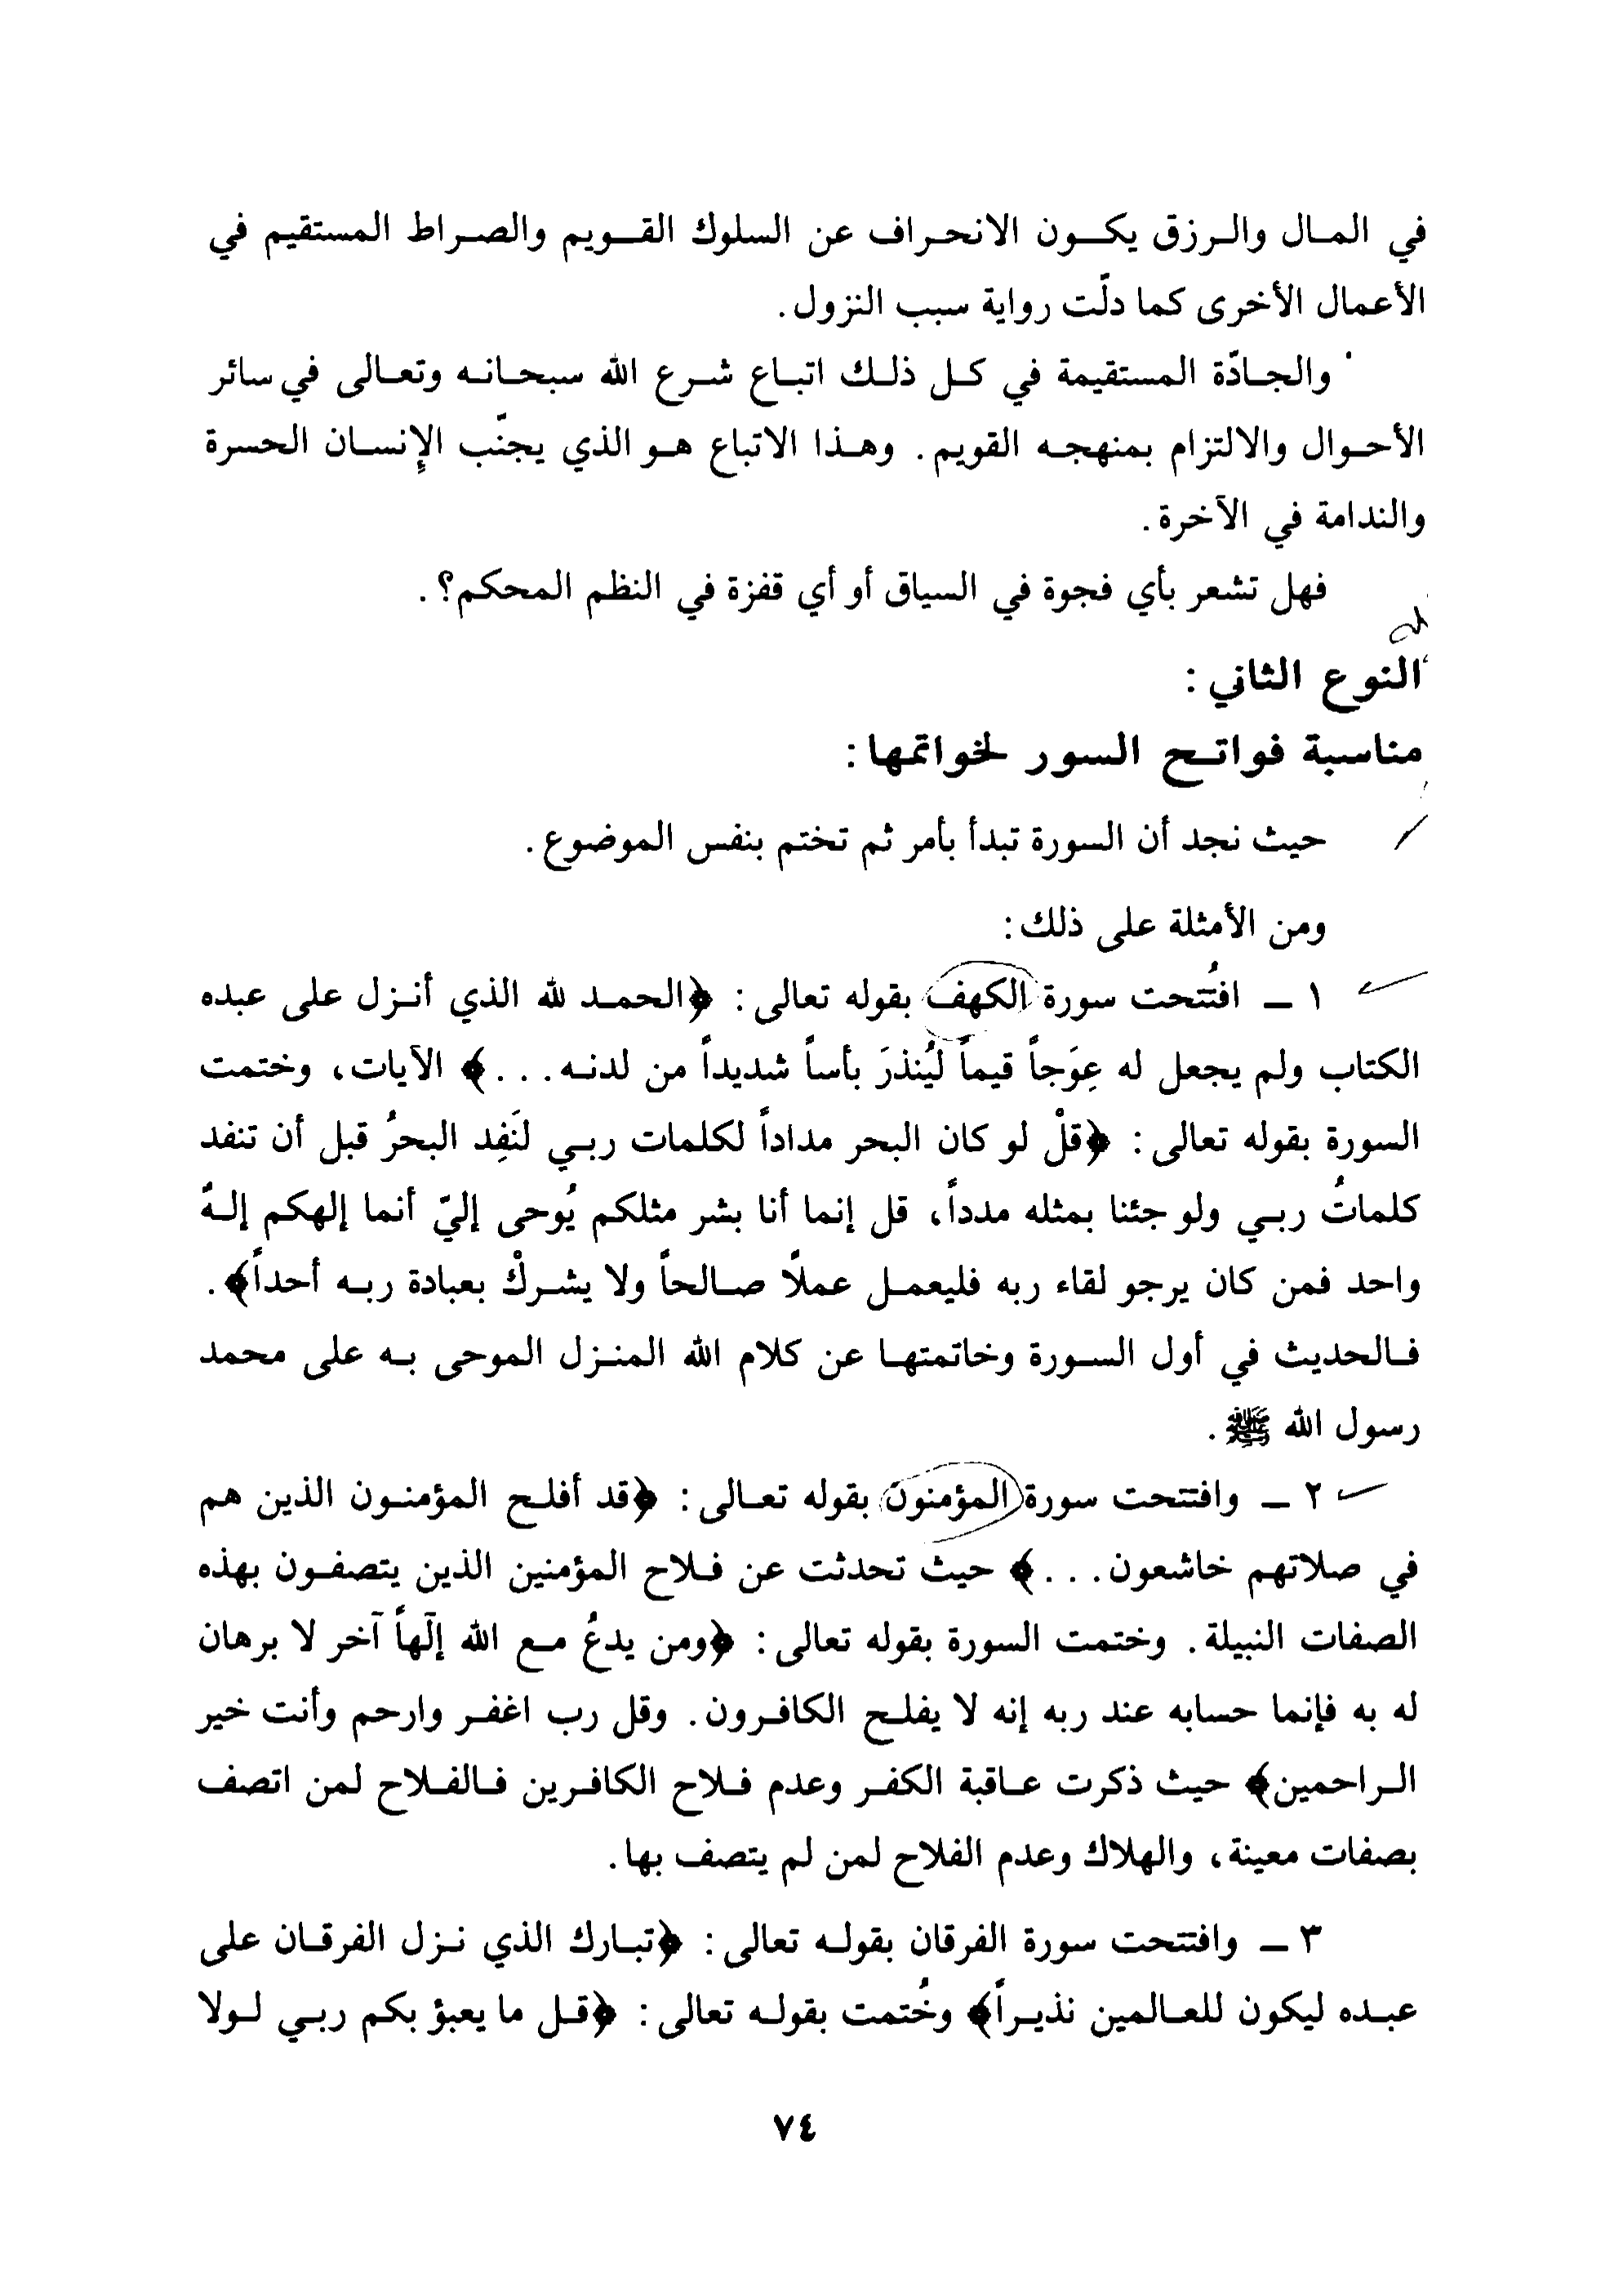 في المال والرزق يكون الانحراف عن السلوك القويم والصراط المستقيم في
الأعمال الأخرى كما دلّت رواية سبب النزول.
والجادّة المستقيمة في كل ذلك اتباع شرع الله سبحانه وتعالى في سائر
الأحوال والالتزام بمنهجه القويم. وهذا الاتباع هو الذي يجنّب الإنسان الحسرة
والندامة في الآخرة.
فهل تشعر بأي فجوة في السياق أو أي قفزة في النظم المحكم؟.
النوع الثاني:
مناسبة فواتح السور لخواتمها:
حيث نجد أن السورة تبدأ بأمر ثم تختم بنفس الموضوع.
ومن الأمثلة على ذلك:
١ - افتُتحت سورة الكهف بقوله تعالى: ﴿الحمد لله الذي أنزل على عبده
الكتاب ولم يجعل له عِوَجاً قيماً ليُنذرَ بأساً شديداً من لدنه...﴾ الآيات، وختمت
السورة بقوله تعالى: ﴿قلْ لو كان البحر مداداً لكلمات ربي لنَفِد البحرُ قبل أن تنفد
كلماتُ ربي ولو جئنا بمثله مدداً، قل إنما أنا بشر مثلكم يُوحى إليّ أنما إلهكم إلهٌ
واحد فمن كان يرجو لقاء ربه فليعمل عملاً صالحاً ولا يشركْ بعبادة ربه أحداً﴾.
فالحديث في أول السورة وخاتمتها عن كلام الله المنزل الموحى به على محمد
رسول الله ﷺ.
٢ - وافتتحت سورة المؤمنون بقوله تعالى: ﴿قد أفلح المؤمنون الذين هم
في صلاتهم خاشعون...﴾ حيث تحدثت عن فلاح المؤمنين الذين يتصفون بهذه
الصفات النبيلة. وختمت السورة بقوله تعالى: ﴿ومن يدعُ مع الله إلٓهاً آخر لا برهان
له به فإنما حسابه عند ربه إنه لا يفلح الكافرون. وقل رب اغفر وارحم وأنت خير
الراحمين﴾ حيث ذكرت عاقبة الكفر وعدم فلاح الكافرين فالفلاح لمن اتصف
بصفات معينة، والهلاك وعدم الفلاح لمن لم يتصف بها.
٣ - وافتتحت سورة الفرقان بقوله تعالى: ﴿تبارك الذي نزل الفرقان على
عبده ليكون للعالمين نذيراً﴾ وخُتمت بقوله تعالى: ﴿قل ما يعبؤ بكم ربي لولا
٧٤